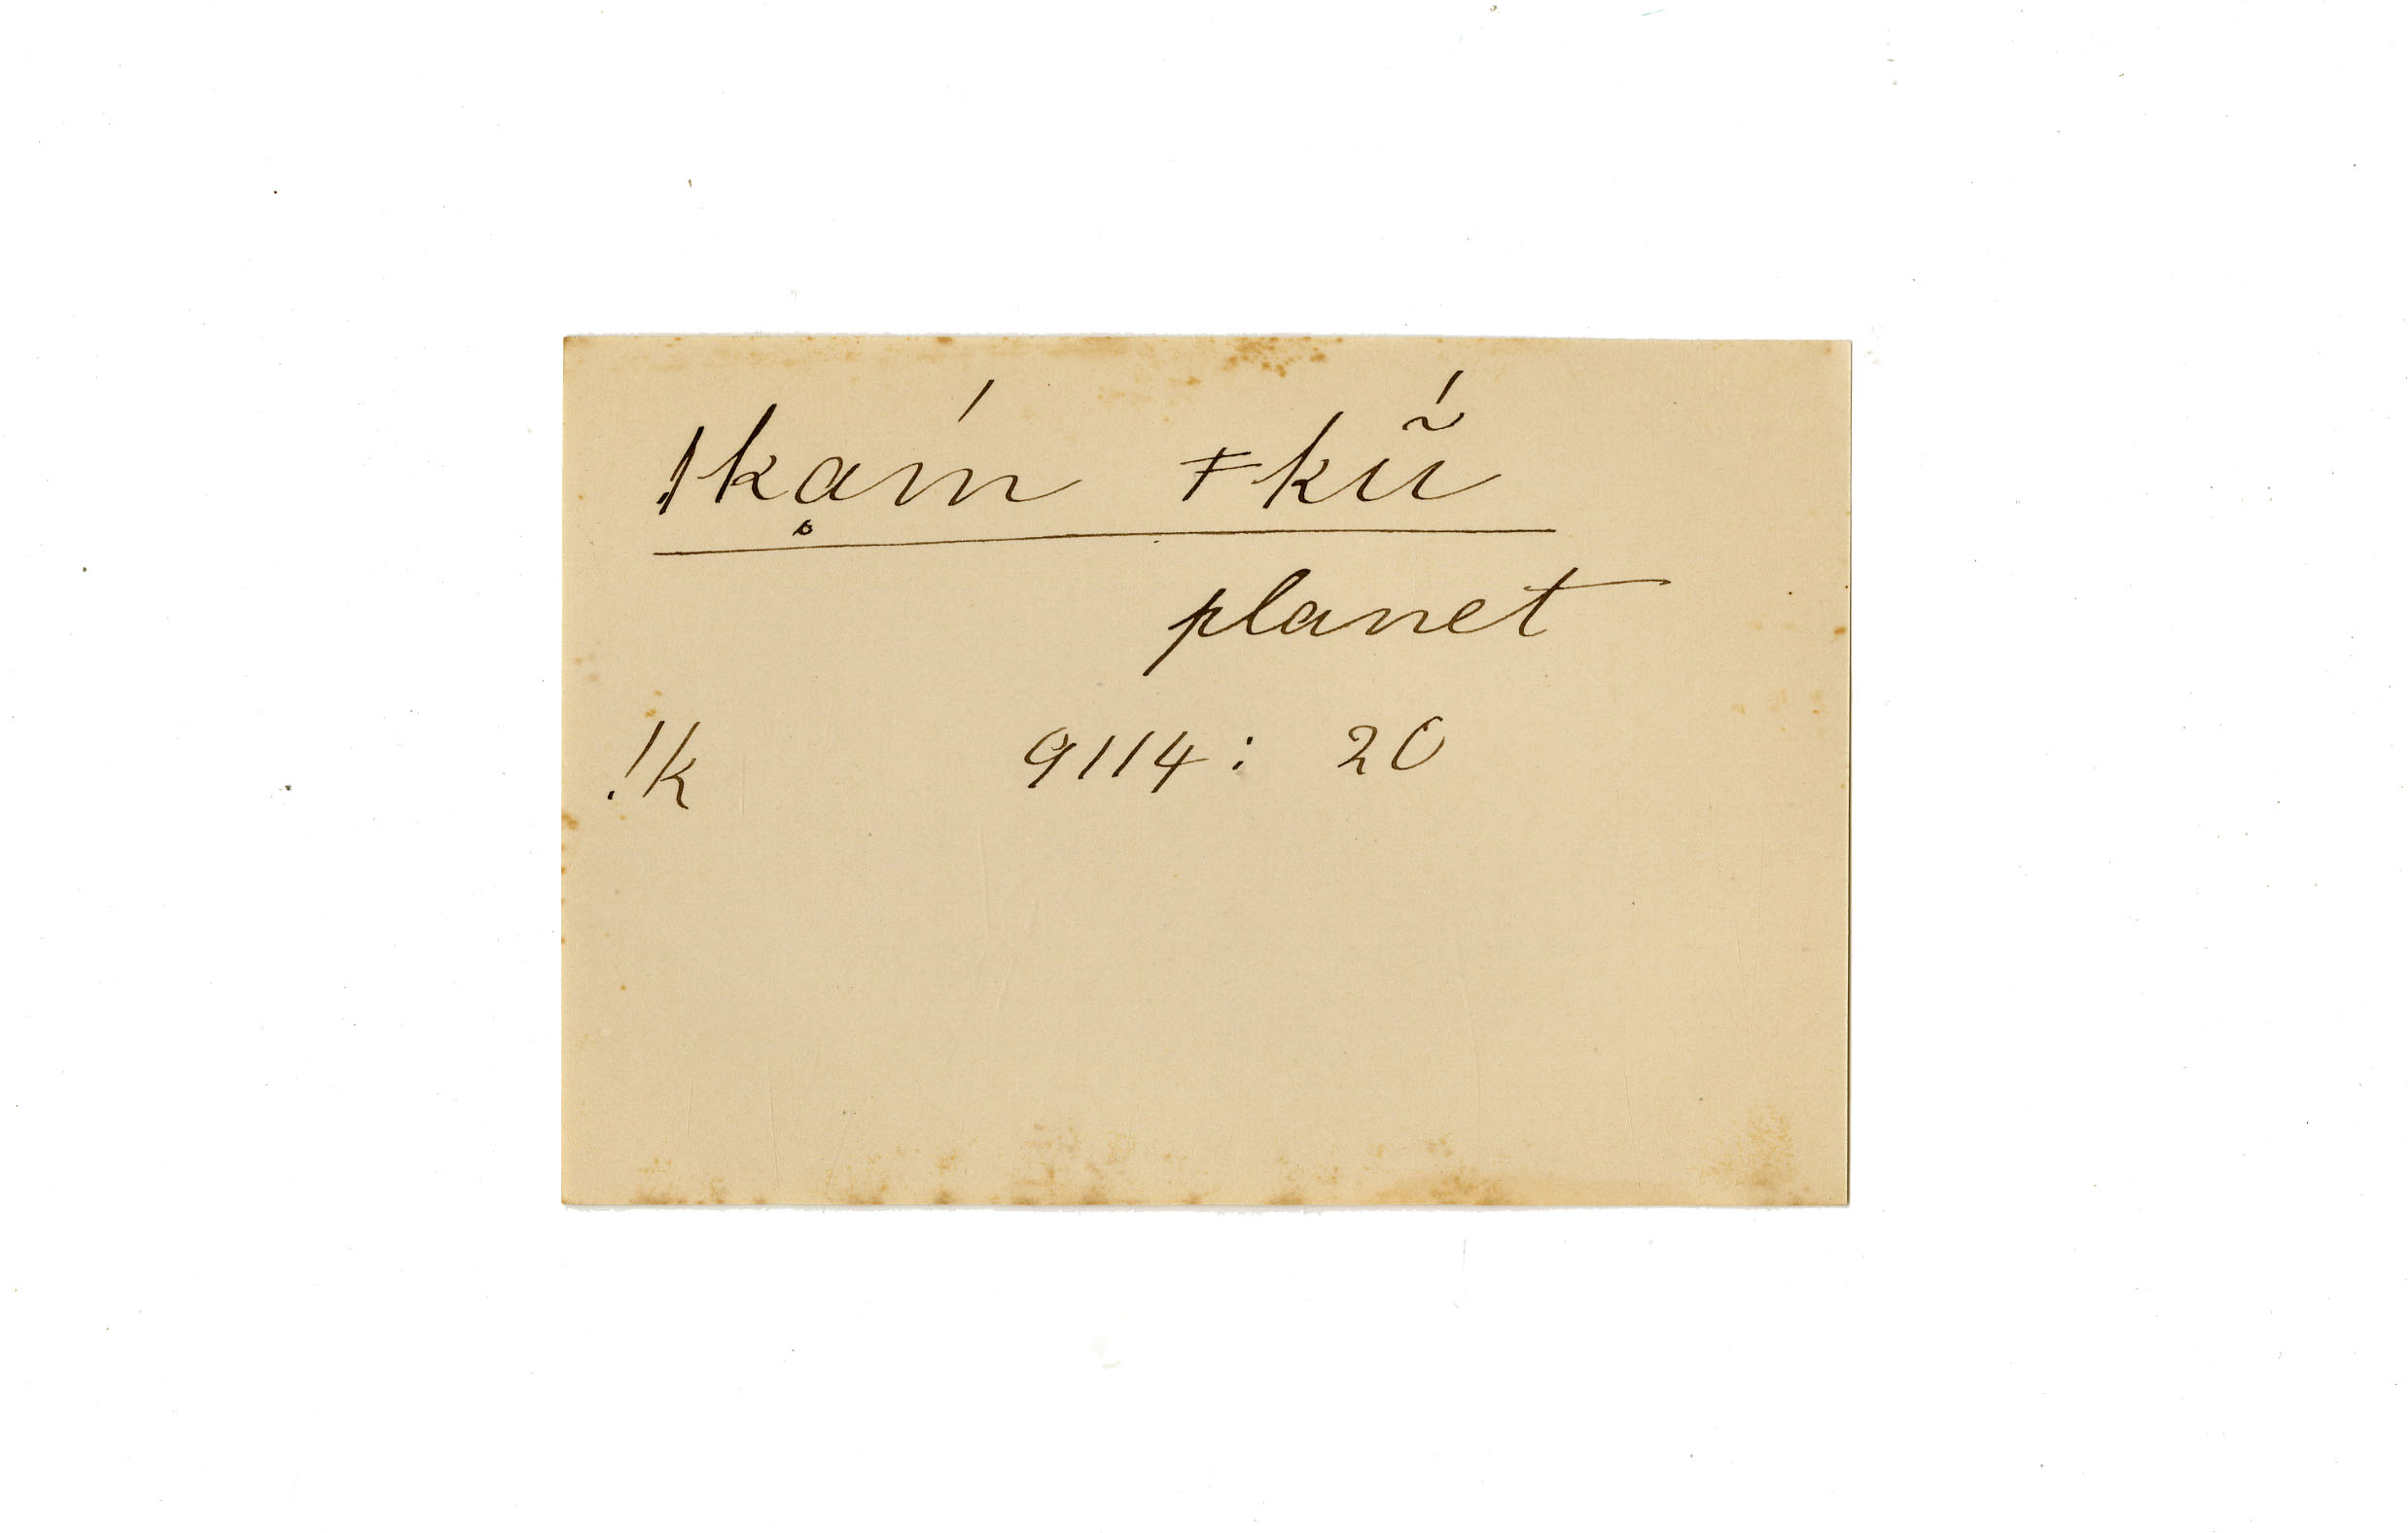 !kḁ́m ǂkṹ
planet
!k 9114: 20